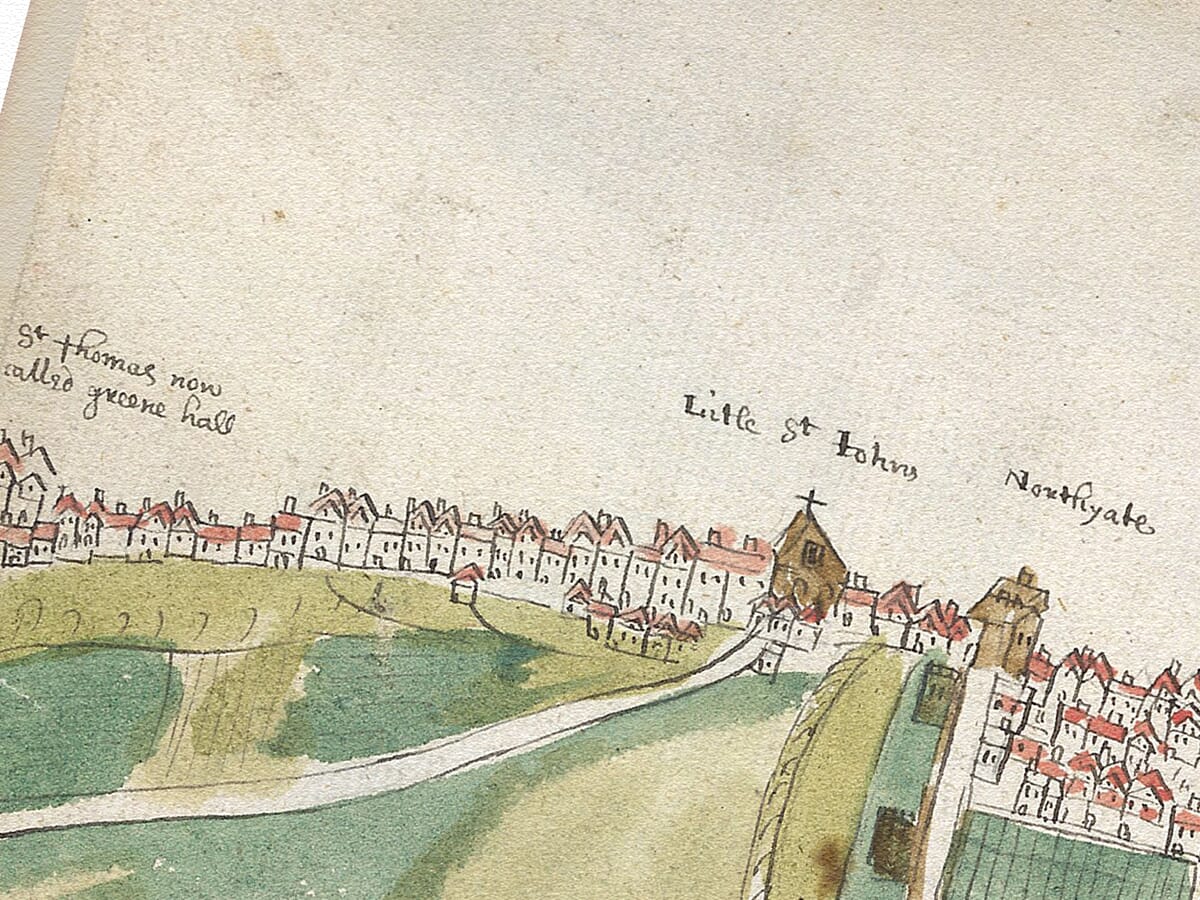 St thomas now
called greene hall
Litle St Iohns
Northgate